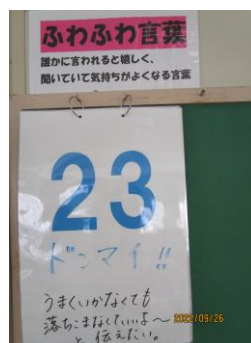 ふわふわ言葉
誰かに言われると嬉しく、
聞いていて気持ちがよくなる言葉
23
ドンマイ!!
うまくいかなくても
落ちこまなくていいよ〜
と伝えたい。
2022/09/26